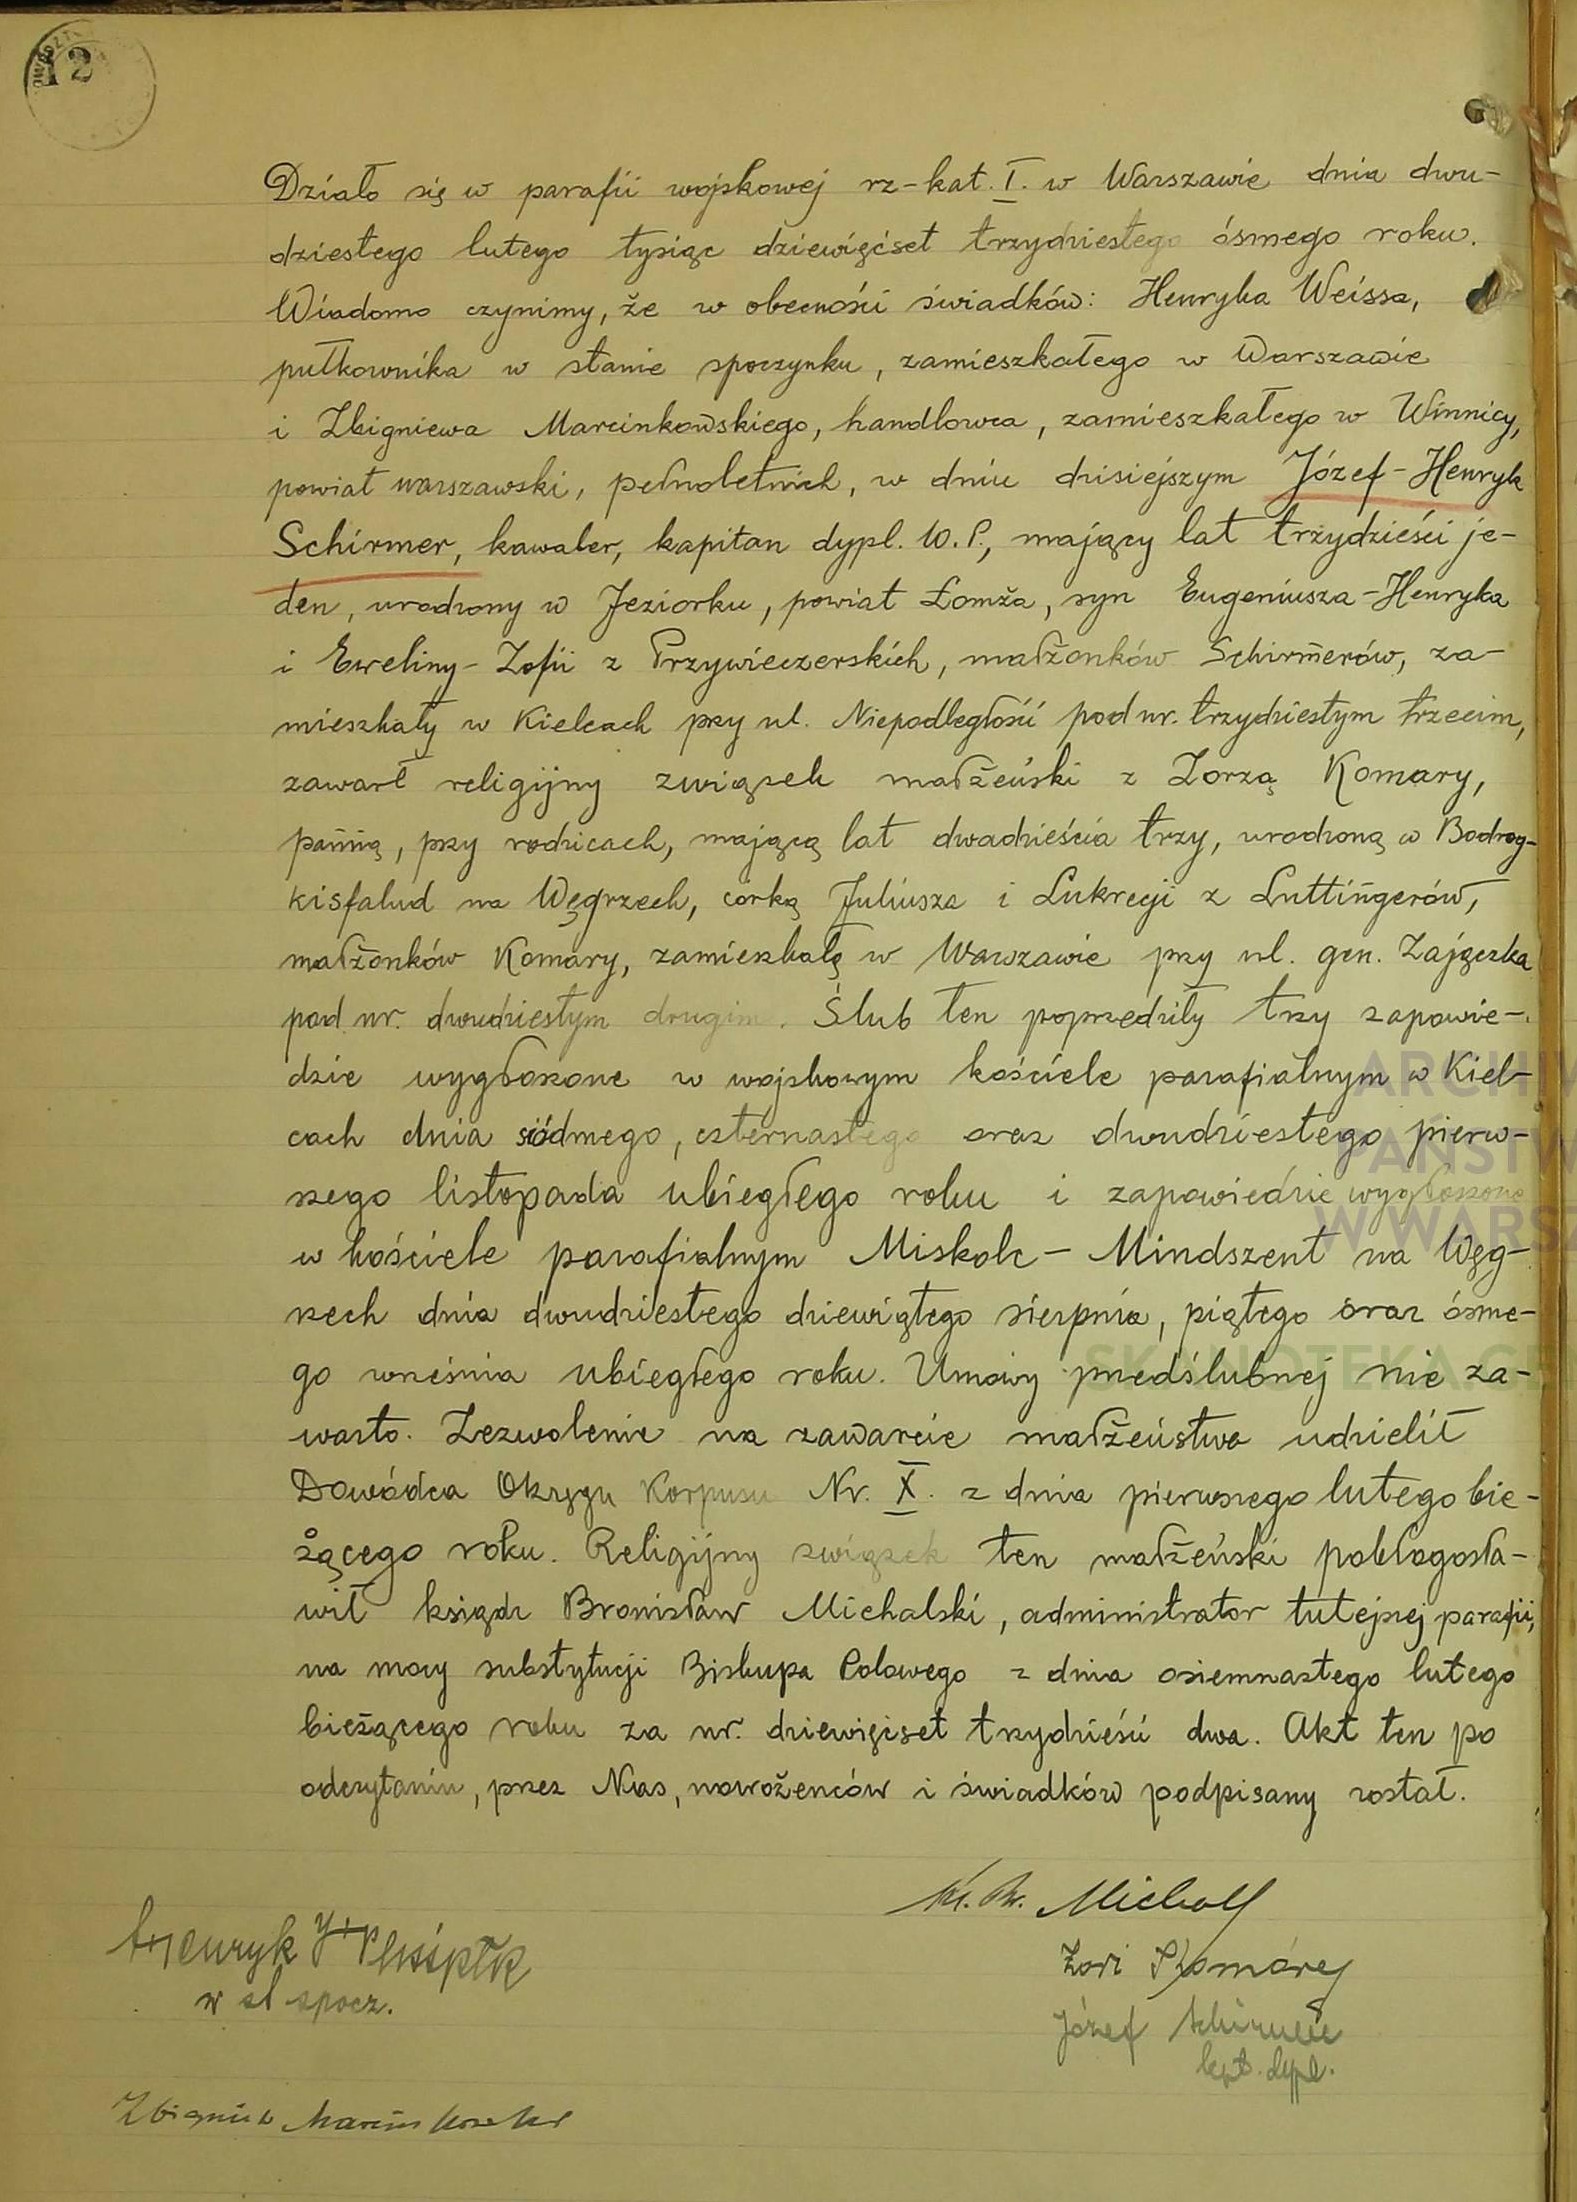 12
Działo się w parafii wojskowej rz-kat. I. w Warszawie dnia dwu-
dziestego lutego tysiąc dziewięćset trzydziestego ósmego roku.
Wiadomo czynimy, że w obecności świadków: Henryka Weissa,
pułkownika w stanie spoczynku, zamieszkałego w Warszawie
i Zbigniewa Marcinkowskiego, handlowca, zamieszkałego w Winnicy,
powiat warszawski, pełnoletnich, w dniu dzisiejszym Józef-Henryk
Schirmer, kawaler, kapitan dypl. W.P., mający lat trzydzieści je-
den, urodzony w Jeziorku, powiat Łomża, syn Eugeniusza-Henryka
i Eweliny-Zofii z Przywieczerskich, małżonków Schirmerów, za-
mieszkały w Kielcach przy ul. Niepodległości pod nr. trzydziestym trzecim,
zawarł religijny związek małżeński z Zorzą Komary,
panną, przy rodzicach, mającą lat dwadzieścia trzy, urodzoną w Bodrog-
kisfalud na Węgrzech, córką Juliusza i Lukrecji z Luttingerów,
małżonków Komáry, zamieszkałą w Warszawie przy ul. gen. Zajączka
pod nr. dwudziestym drugim. Ślub ten poprzedziły trzy zapowie-
dzie wygłoszone w wojskowym kościele parafialnym w Kiel-
cach dnia siódmego, czternastego oraz dwudziestego pierw-
szego listopada ubiegłego roku i zapowiedzie wygłoszone
w kościele parafialnym Miskolc - Mindszent na Węg-
rzech dnia dwudziestego dziewiątego sierpnia, piątego oraz ósme-
go września ubiegłego roku. Umowy przedślubnej nie za-
warto. Zezwolenie na zawarcie małżeństwa udzielił
Dowódca Okręgu Korpusu Nr. X. z dnia pierwszego lutego bie-
żącego roku. Religijny związek ten małżeński pobłogosła-
wił ksiądz Bronisław Michalski, administrator tutejszej parafii,
na mocy substytucji Biskupa Polowego z dnia osiemnastego lutego
bieżącego roku za nr. dziewięćset trzydzieści dwa. Akt ten po
odczytaniu, przez Nas, nowożeńców i świadków podpisany został.
Ks. Br. Michal
Henryk
Zori Komáry
w st spocz.
Józef Schirmer
kpt. dypl.
Zbigniew Marcinkowski
ARCHIW
PAŃSTW
W WARSZ
SKANOTEKA.GE